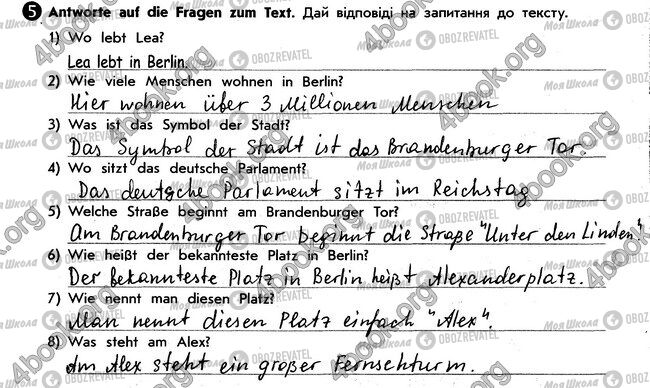 5 Antworte auf die Fragen zum Text. Дай відповіді на запитання до тексту.
1) Wo lebt Lea?
Lea lebt in Berlin.
2) Wie viele Menschen wohnen in Berlin?
Hier wohnen über 3 Millionen Menschen
3) Was ist das Symbol der Stadt?
Das Symbol der Stadt ist das Brandenburger Tor
4) Wo sitzt das deutsche Parlament?
Das deutsche Parlament sitzt im Reichstag
5) Welche Straße beginnt am Brandenburger Tor?
Am Brandenburger Tor beginnt die Straße "Unter den Linden"
6) Wie heißt der bekannteste Platz in Berlin?
Der bekannteste Platz in Berlin heißt Alexanderplatz.
7) Wie nennt man diesen Platz?
Man nennt diesen Platz einfach "Alex".
8) Was steht am Alex?
Am Alex steht ein großer Fernsehturm.